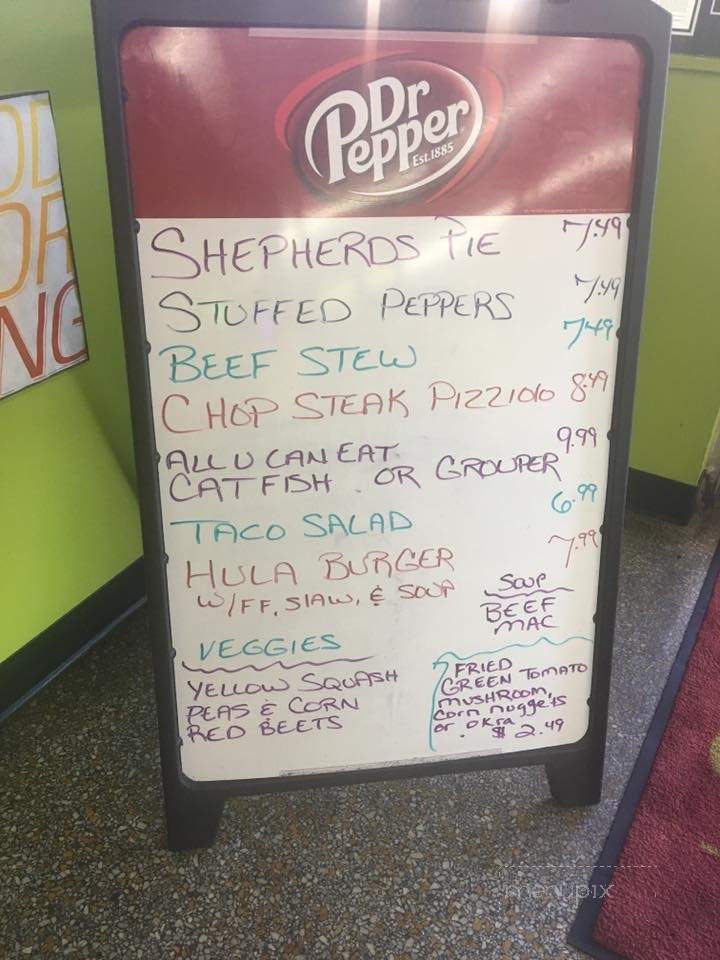 Dr
Pepper
Est.1885
SHEPHERDS PIE 7.49
STUFFED PEPPERS 7.49
BEEF STEW 7.49
CHOP STEAK PIZZIOLO 8.49
ALL U CAN EAT 9.99
CATFISH OR GROUPER
TACO SALAD 6.99
HULA BURGER 7.99
W/FF, SLAW, & SOUP
SOUP
BEEF
MAC
VEGGIES
YELLOW SQUASH
PEAS & CORN
RED BEETS
FRIED
GREEN TOMATO
MUSHROOM,
corn nuggets
or okra
$ 2.49
NG
menupix